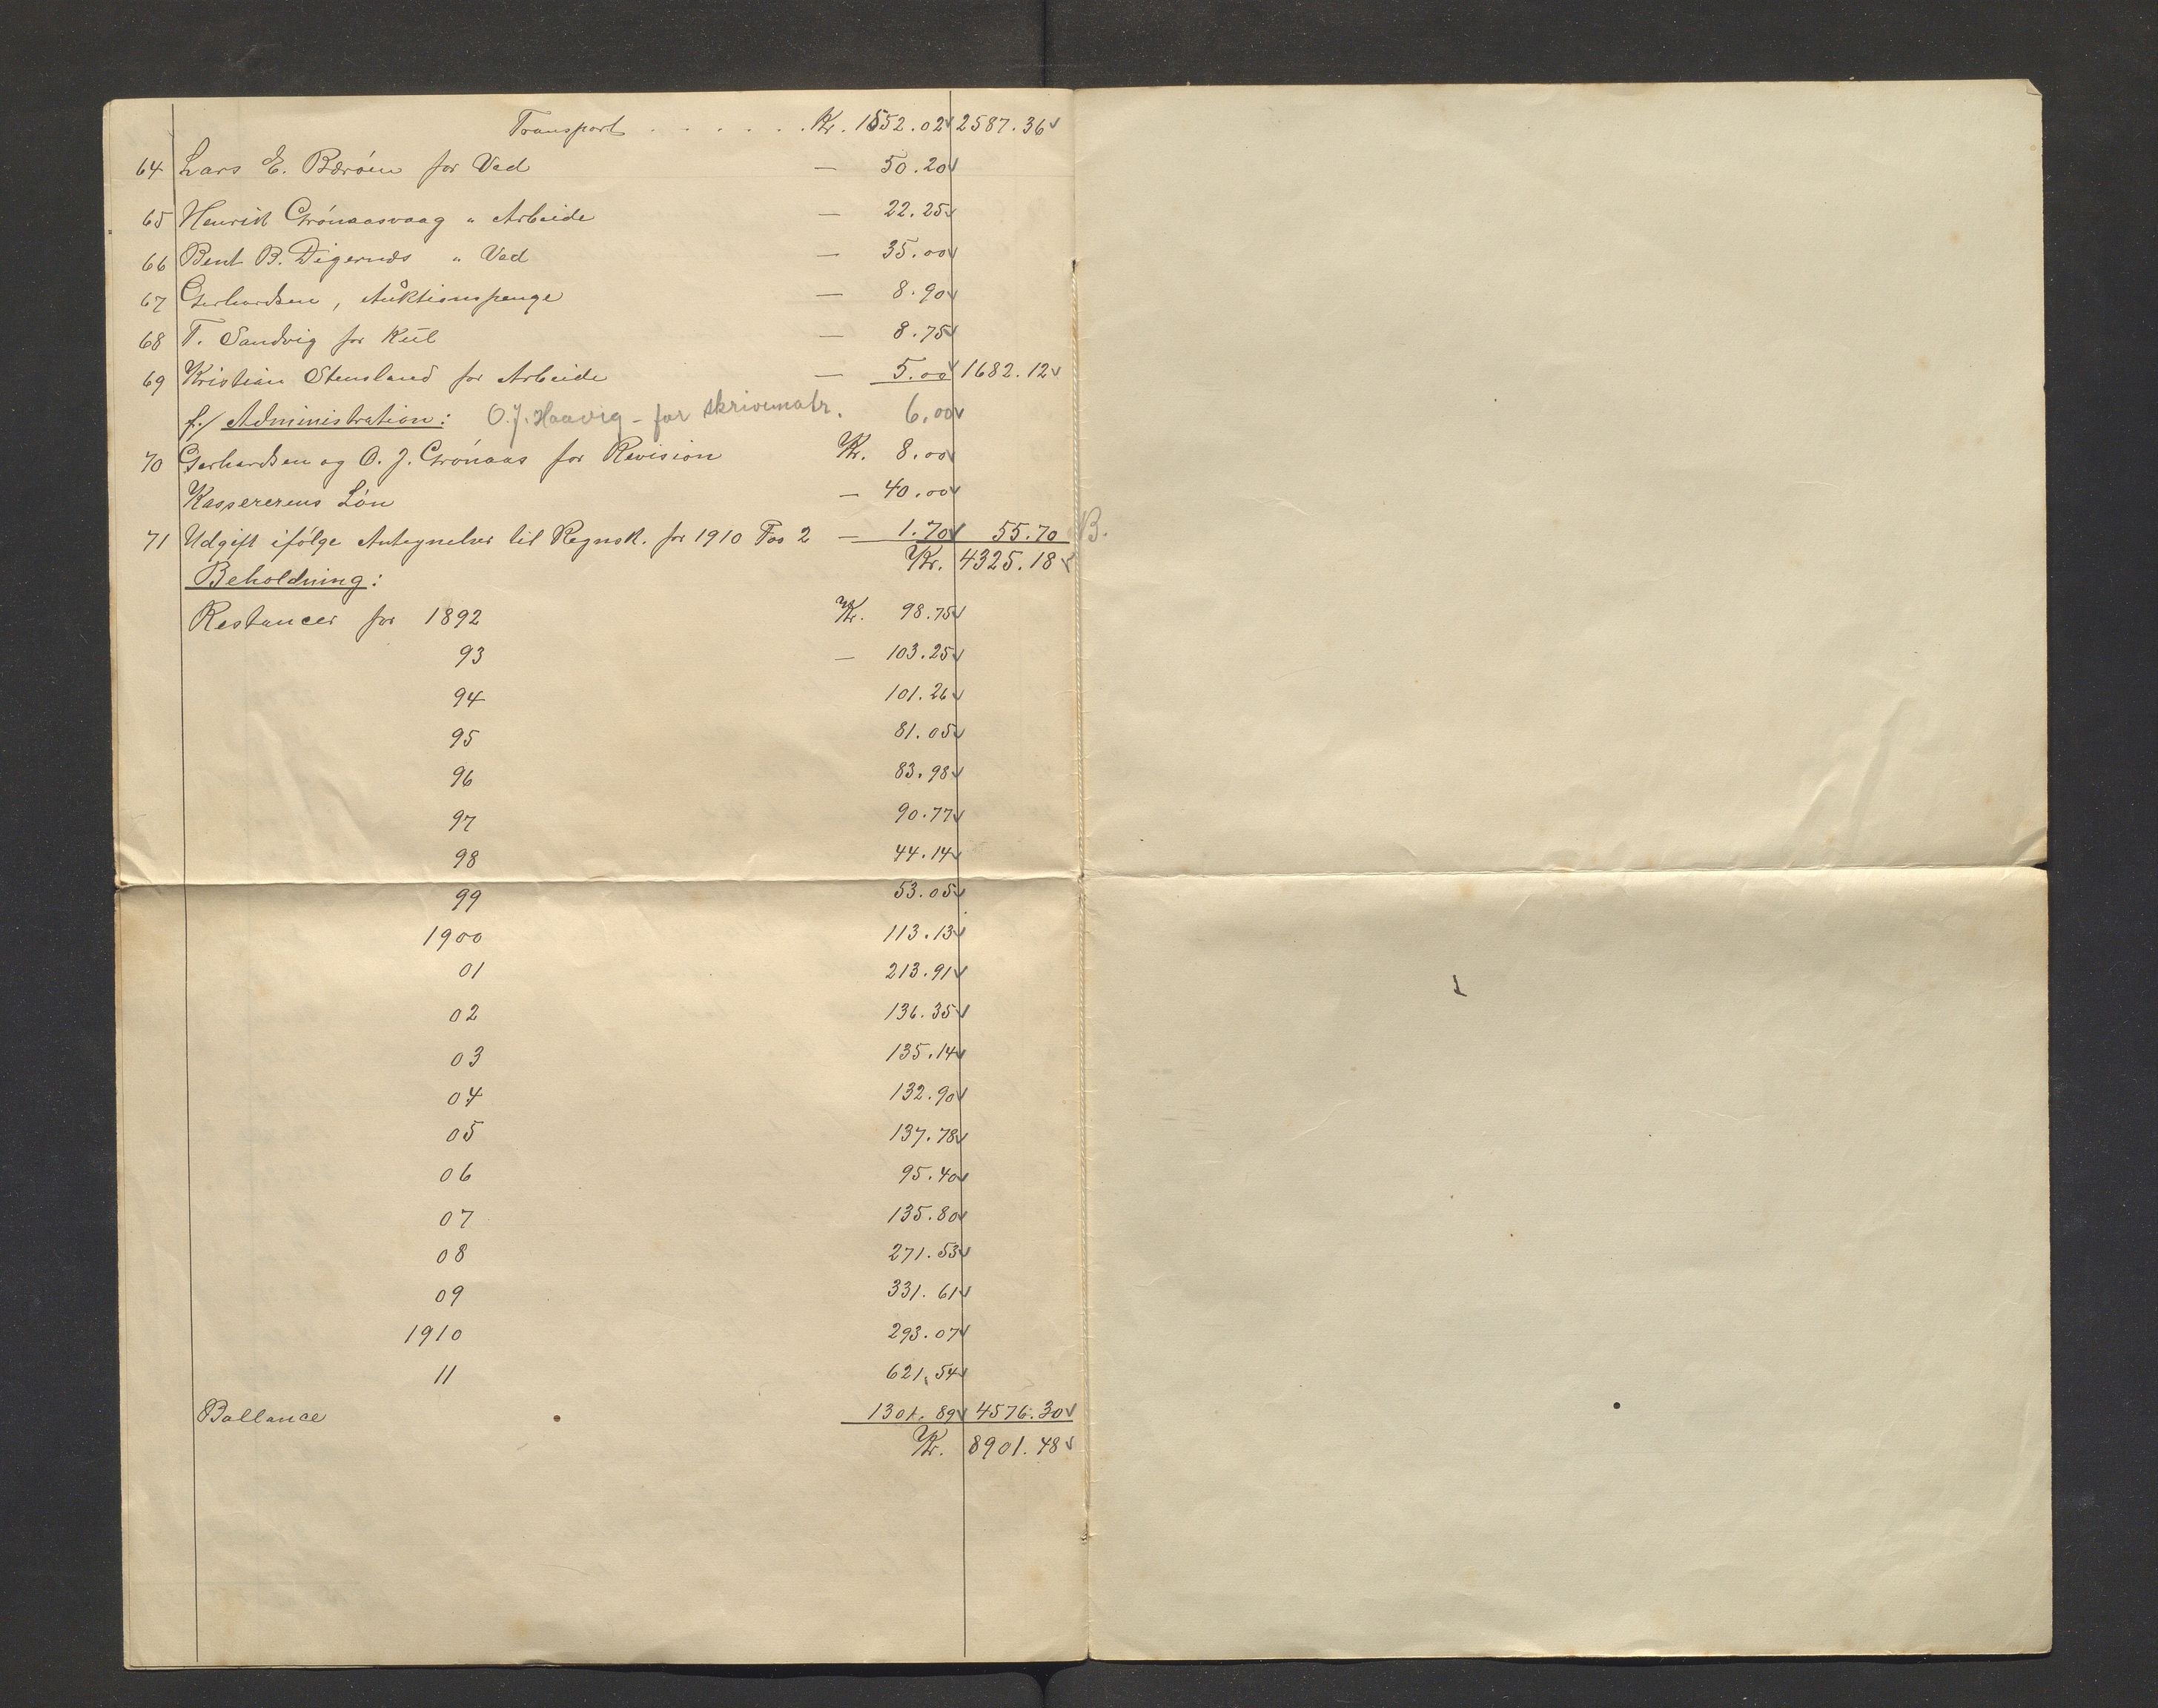 Transport . . . . . . Kr. 1552.02 2587.36
64 Lars E. Bærøen for Ved — 50.20
65 Henrik Grónaasvaag " Arbeide — 22.25
66 Bent B. Digernæs " Ved — 35.00
67 Gerhardsen, Auktionspenge — 8.90
68 T. Sandvig for Kul — 8.75
69 Kristian Stensland for Arbeide — 5.00 1682.12
f./ Administration: O. J. Haavig - for skrivematr. 6.00
70 Gerhardsen og O. J. Grónaas for Revision Kr. 8.00
Kassererens Lón — 40.00
71 Udgift ifólge Antegnelser til Regnsk. for 1910 Pos 2 — 1.70 55.70 B.
Kr. 4325.18
Beholdning:
Restancer for 1892 Kr. 98.75
93 — 103.25
94 101.26
95 81.05
96 83.98
97 90.77
98 44.14
99 53.05
1900 113.13
01 213.91
02 136.35
03 135.14
04 132.90
05 137.78
06 95.40
07 135.80
08 271.53
09 331.61
1910 293.07
11 621.54
Ballance 1301.89 4576.30
Kr. 8901.48